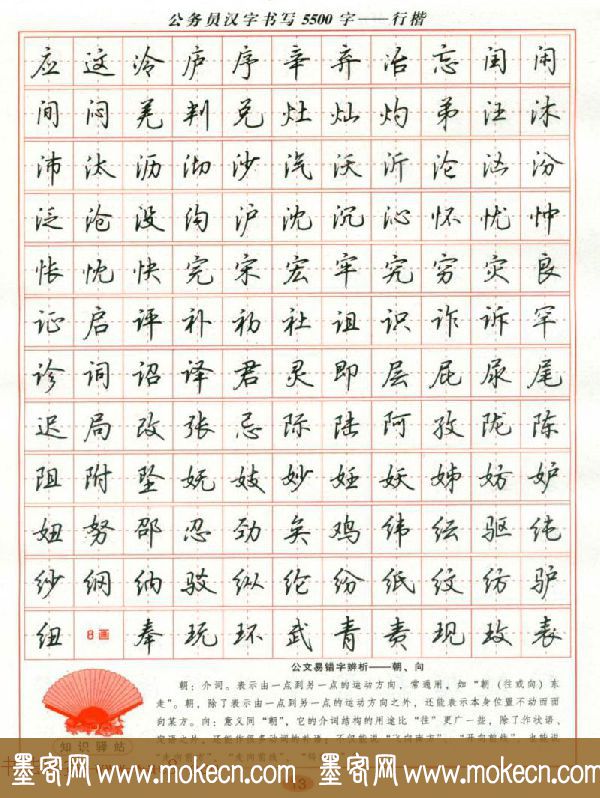 公务员汉字书写5500字——行楷
应这冷庐序辛弃冶忘闰闲
间闷羌判兑灶灿灼弟汪沐
沛汰沥沏沙汽沃沂沦汹汾
泛沧没沟沪沈沉沁怀忧忡
怅忱快完宋宏牢究穷灾良
证启评补初社诅识诈诉罕
诊词诏译君灵即层屁尿尾
迟局改张忌际陆阿孜陇陈
阻附坠妩妓妙妊妖姊妨妒
妞努邵忍劲矣鸡纬纭驱纯
纱纲纳驳纵纶纷纸纹纺驴
纽 8画 奉玩环武青责现玫表
公文易错字辨析——朝、向
朝：介词。表示由一点到另一点的运动方向，常通用，如“朝（往或向）东
走”。朝，除了表示由一点到另一点的运动方向之外，还能表示本身位置不动而面
向某方。向：意义同“朝”，它的介词结构的用途比“往”更广一些，除了作状语、
知识驿站
墨客网 www.mokecn.com 墨客网 www.mokecn.com
13